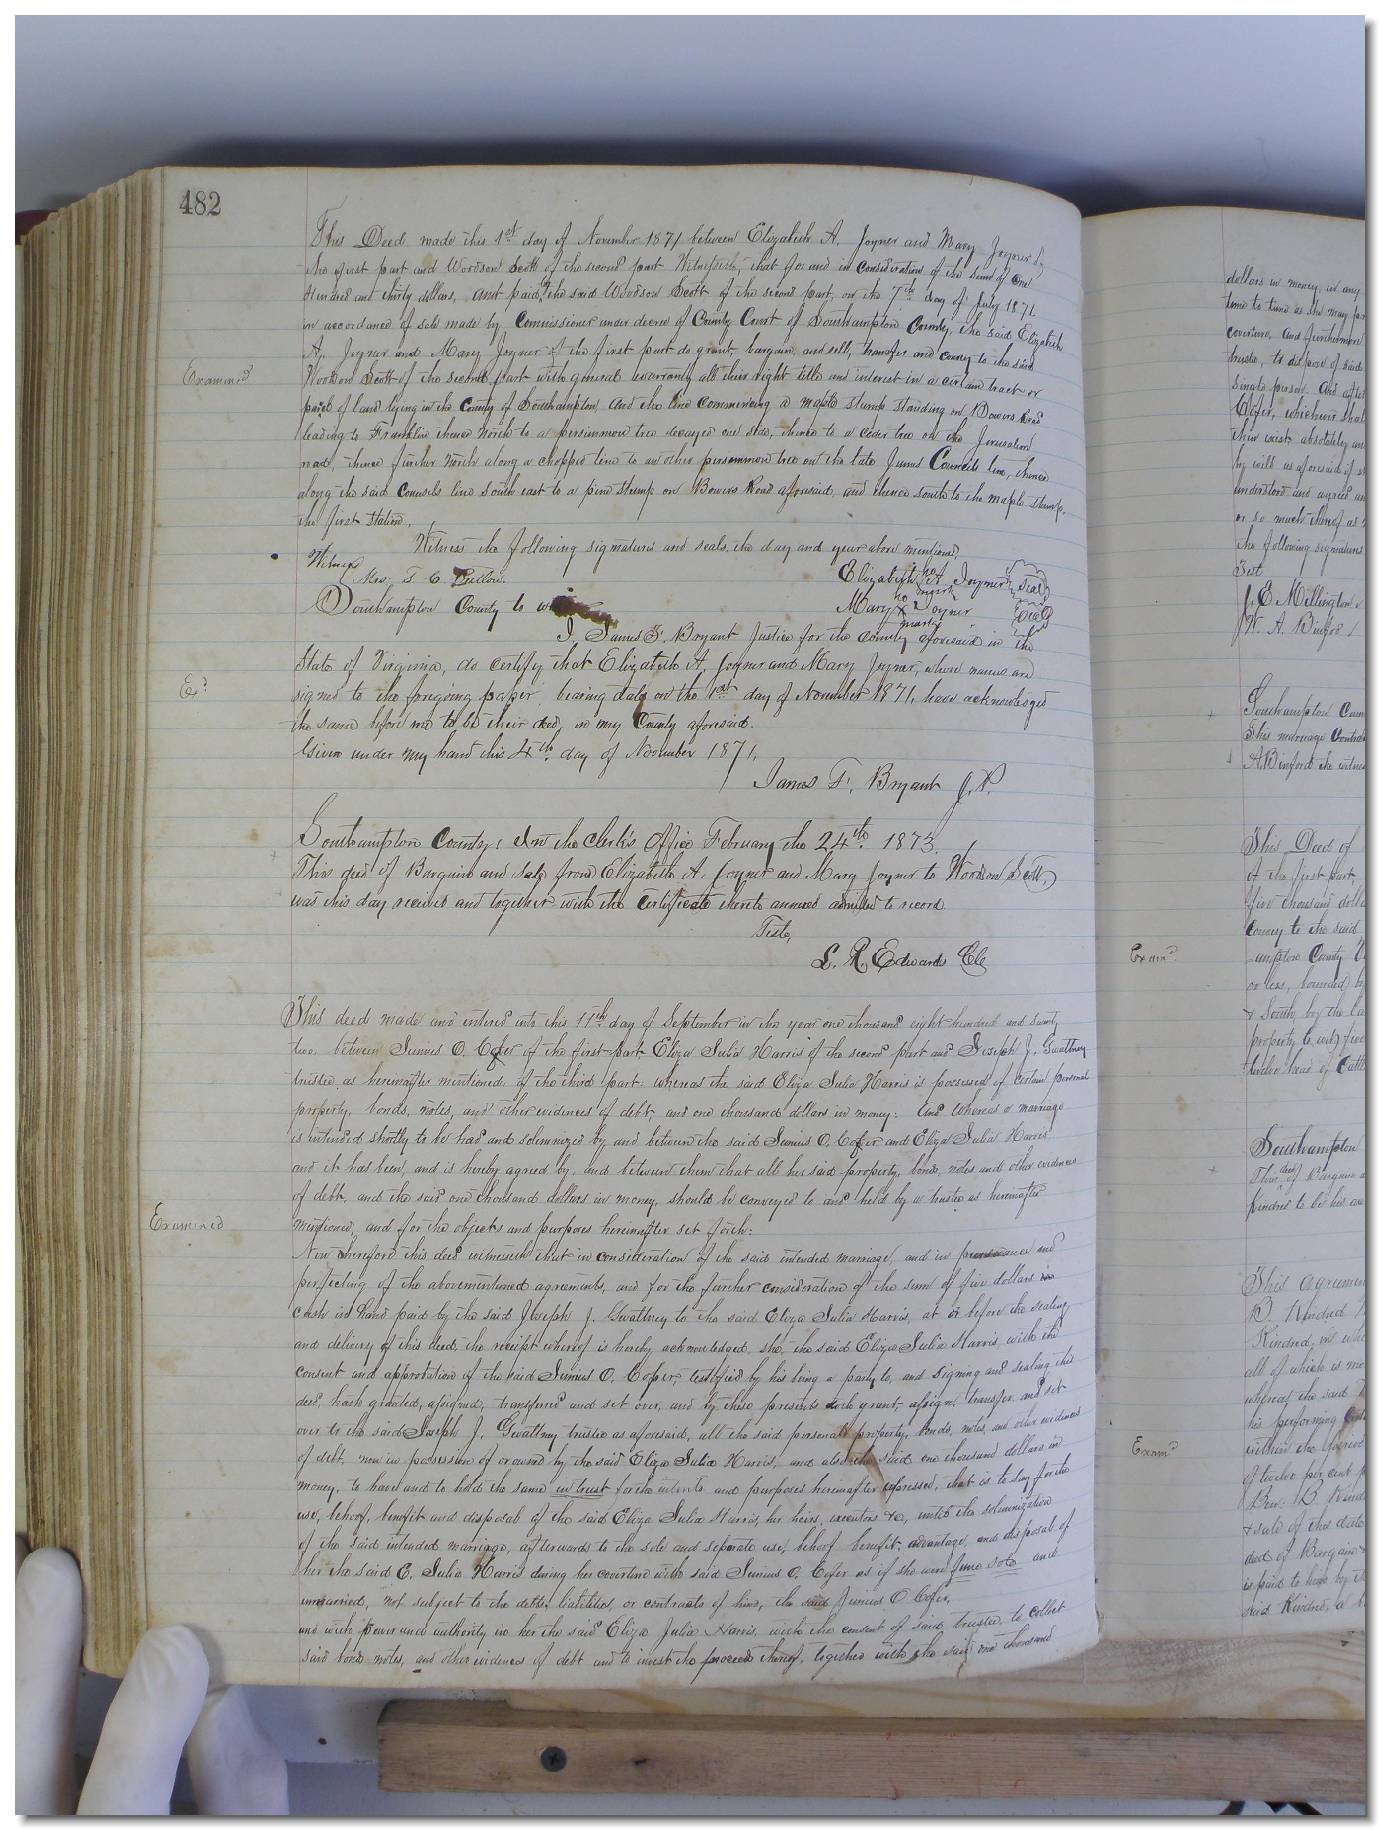 482
This Deed made this 1st day of November 1871 between Elizabeth A. Joyner and Mary Joyner of
the first part and Woodson Scott of the second part Witnesseth, that for and in consideration of the sum of one
Hundred and thirty dollars, amt paid by the said Woodson Scott of the second part, on the 7th day of July 1871
in accordance of sale made by Commissioner under decree of County Court of Southampton County, the said Elizabeth
A. Joyner and Mary Joyner of the first part do grant, bargain and sell, transfer and convey to the said
Examined
Woodson Scott of the second part with general warranty all their right title and interest in a certain tract or
parcel of land lying in the County of Southampton and the line commencing a maple stump standing on Bowers Road
leading to Franklin thence North to a persimmon tree decayed one side, thence to a ceder tree on the Jerusalem
road, thence further North along a chopped line to an other persimmon tree on the late James Councils line, thence
along the said Councils line South east to a pine stump on Bowers Road aforesaid, and thence south to the maple stump,
the first station.
Witness the following signatures and seals, the day and year above mentioned,
Witness
Mrs. T. C.
Elizabeth A. Joyner Seal
her mark
Southampton County to wit
Mary X Joyner Seal
her mark
I, James F. Bryant Justice for the County aforesaid in the
State of Virginia, do certify that Elizabeth A. Joyner and Mary Joyner, whose names are
Exd
signed to the foregoing paper bearing date on the 1st day of November 1871, have acknowledged
the same before me to be their deed, in my County aforesaid.
Given under my hand this 4th day of November 1871,
James F. Bryant J.P.
Southampton County: In the Clerk's Office February the 24th 1873.
This deed of Bargain and Sale from Elizabeth A. Joyner and Mary Joyner to Woodson Scott,
was this day received and together with the Certificate thereto annexed admitted to record
Teste,
L. R. Edwards Clk
This deed made and entered into this 11th day of September in the year one thousand eight hundred and seventy
two. between Junius O. Cofer of the first part Eliza Julia Harris of the second part and Joseph J. Gwaltney
trustee as hereinafter mentioned, of the third part. whereas the said Eliza Julia Harris is possessed of certain personal
property, bonds, notes, and other evidences of debt, and one thousand dollars in money: And whereas a marriage
is intended shortly to be had and solemnized by and between the said Junius O. Cofer and Eliza Julia Harris
and it has been, and is hereby agreed by and between them that all her said property, bonds, notes and other evidences
of debt, and the said one thousand dollars in money, should be conveyed to and held by a trustee as hereinafter
Examined
mentioned, and for the objects and purposes hereinafter set forth:
Now therefore this deed witnesseth that in consideration of the said intended marriage, and in pursuance and
perfecting of the abovementioned agreements, and for the further consideration of the sum of five dollars in
cash in hand paid by the said Joseph J. Gwaltney to the said Eliza Julia Harris, at or before the sealing
and delivery of this deed, the receipt whereof is hereby acknowledged, she, the said Eliza Julia Harris, with the
consent and approbation of the said Junius O. Cofer, testified by his being a party to, and signing and sealing this
deed, hath granted, assigned, transferred and set over, and by these presents doth grant, assign, transfer, and set
over to the said Joseph J. Gwaltney trustee as aforesaid, all the said personal property, bonds, notes, and other evidences
of debt, now in possession of or owned by the said Eliza Julia Harris, and also the said one thousand dollars in
money, to have and to hold the same in trust for the intents and purposes hereinafter expressed, that is to say for the
use, behoof, benefit and disposal of the said Eliza Julia Harris, her heirs, executors &c, until the solemnization
of the said intended marriage, afterwards to the sole and separate use, behoof benefit, advantage, and disposal of
her the said E. Julia Harris during her coverture with said Junius O. Cofer as if she were feme sole and
unmarried, not subject to the debts, liabilities, or contracts of him, the said Junius O Cofer,
and with power and authority in her the said Eliza Julia Harris, with the consent of said trustee, to collect
said bonds notes, and other evidences of debt and to invest the proceeds thereof, together with the said one thousand
dollars in money, in any
time to time as she may
coverture, and furthermore
trustee, to dispose of said
single person And after
Cofer, whichever shall
then exist, absolutely and
by will as aforesaid
understood and agreed
or so much thereof as
the following signatures
Test
J. E. Millington
W. A. Binford
Southampton Coun
This marriage Contra
A Binford the witne
This Deed of
of the first part,
five thousand dolla
convey to the said
Examd
ampton County
or less, bounded by
& South, by the la
Southampton
This deed of Bargain a
Kindred to be his
This agreemen
B. Kindred
Kindred,
all of which is mo
whereas the said
his performing
Examd
within the
of twelve per cent
Benj. B. Kind
& sale of the date
deed of Bargain
is paid to have by
said Kindred,